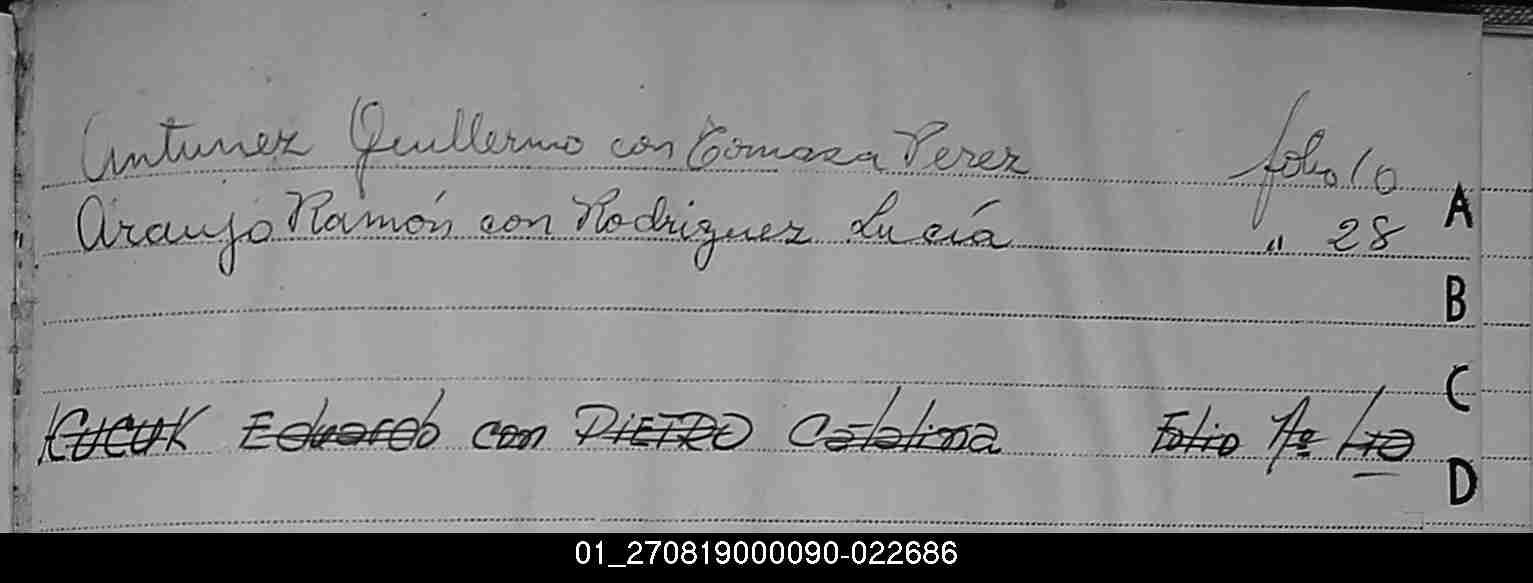 Antunez Guillermo con Tomasa Perez folio 10
Araujo Ramón con Rodriguez Lucía " 28
A
B
C
CUCUK Eduardo con PIETRO Catalina Folio Nº
D
01_270819000090-022686